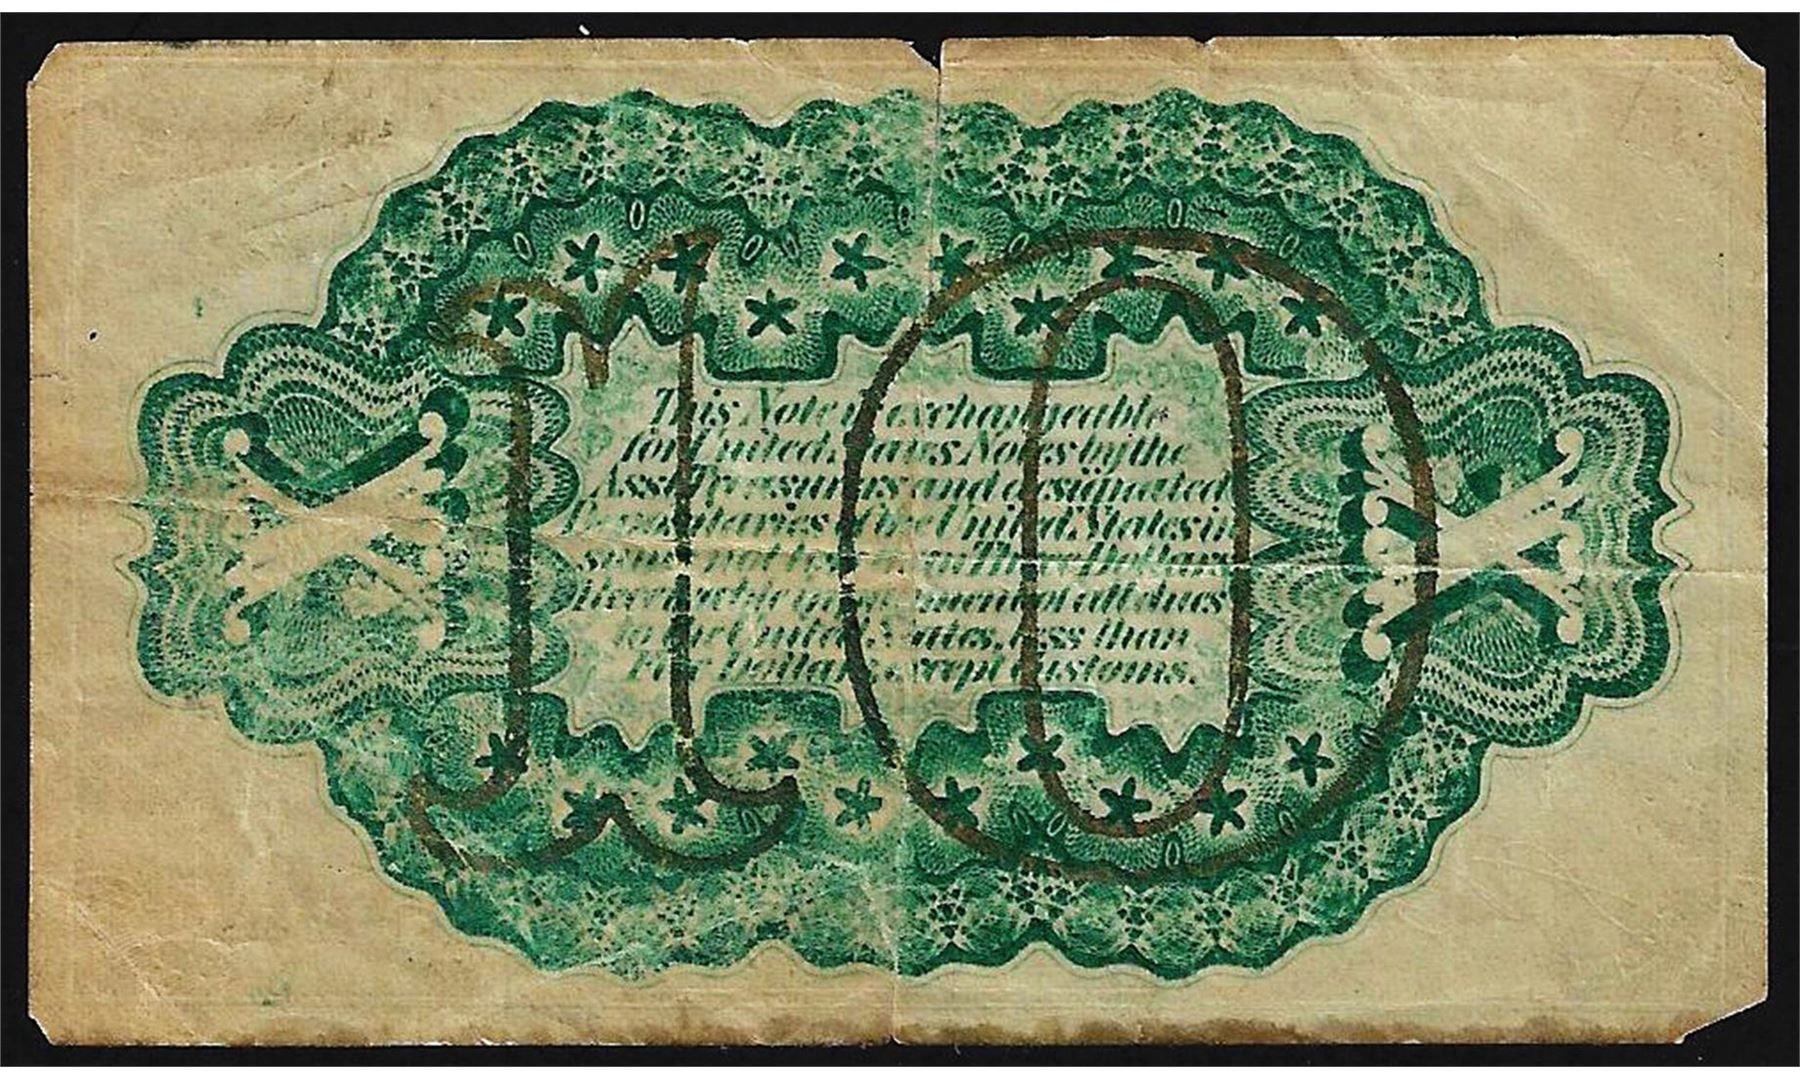 This Note is exchangeable
for United States Notes by the
Asst Treasurers and designated
Depositaries of the United States in
sums not less than Three Dollars
Receivable in payment of all dues
to the United States, less than
Five Dollars, except Customs.
10
X X